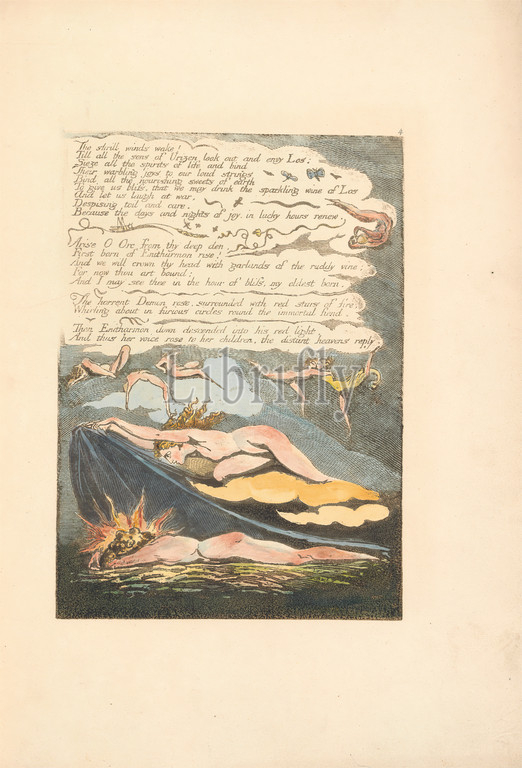 The shrill winds wake!
Till all the sons of Urizen look out and envy Los:
Sieze all the spirits of life and bind
Their warbling joys to our loud strings
Bind all the nourishing sweets of earth
To give us bliss, that we may drink the sparkling wine of Los
And let us laugh at war,
Despising toil and care,
Because the days and nights of joy, in lucky hours renew.
Arise O Orc from thy deep den,
First born of Enitharmon rise!
And we will crown thy head with garlands of the ruddy vine;
For now thou art bound;
And I may see thee in the hour of bliss, my eldest born.
The horrent Demon rose, surrounded with red stars of fire,
Whirling about in furious circles round the immortal fiend.
Then Enitharmon down descended into his red light,
And thus her voice rose to her children, the distant heavens reply.
Librifly